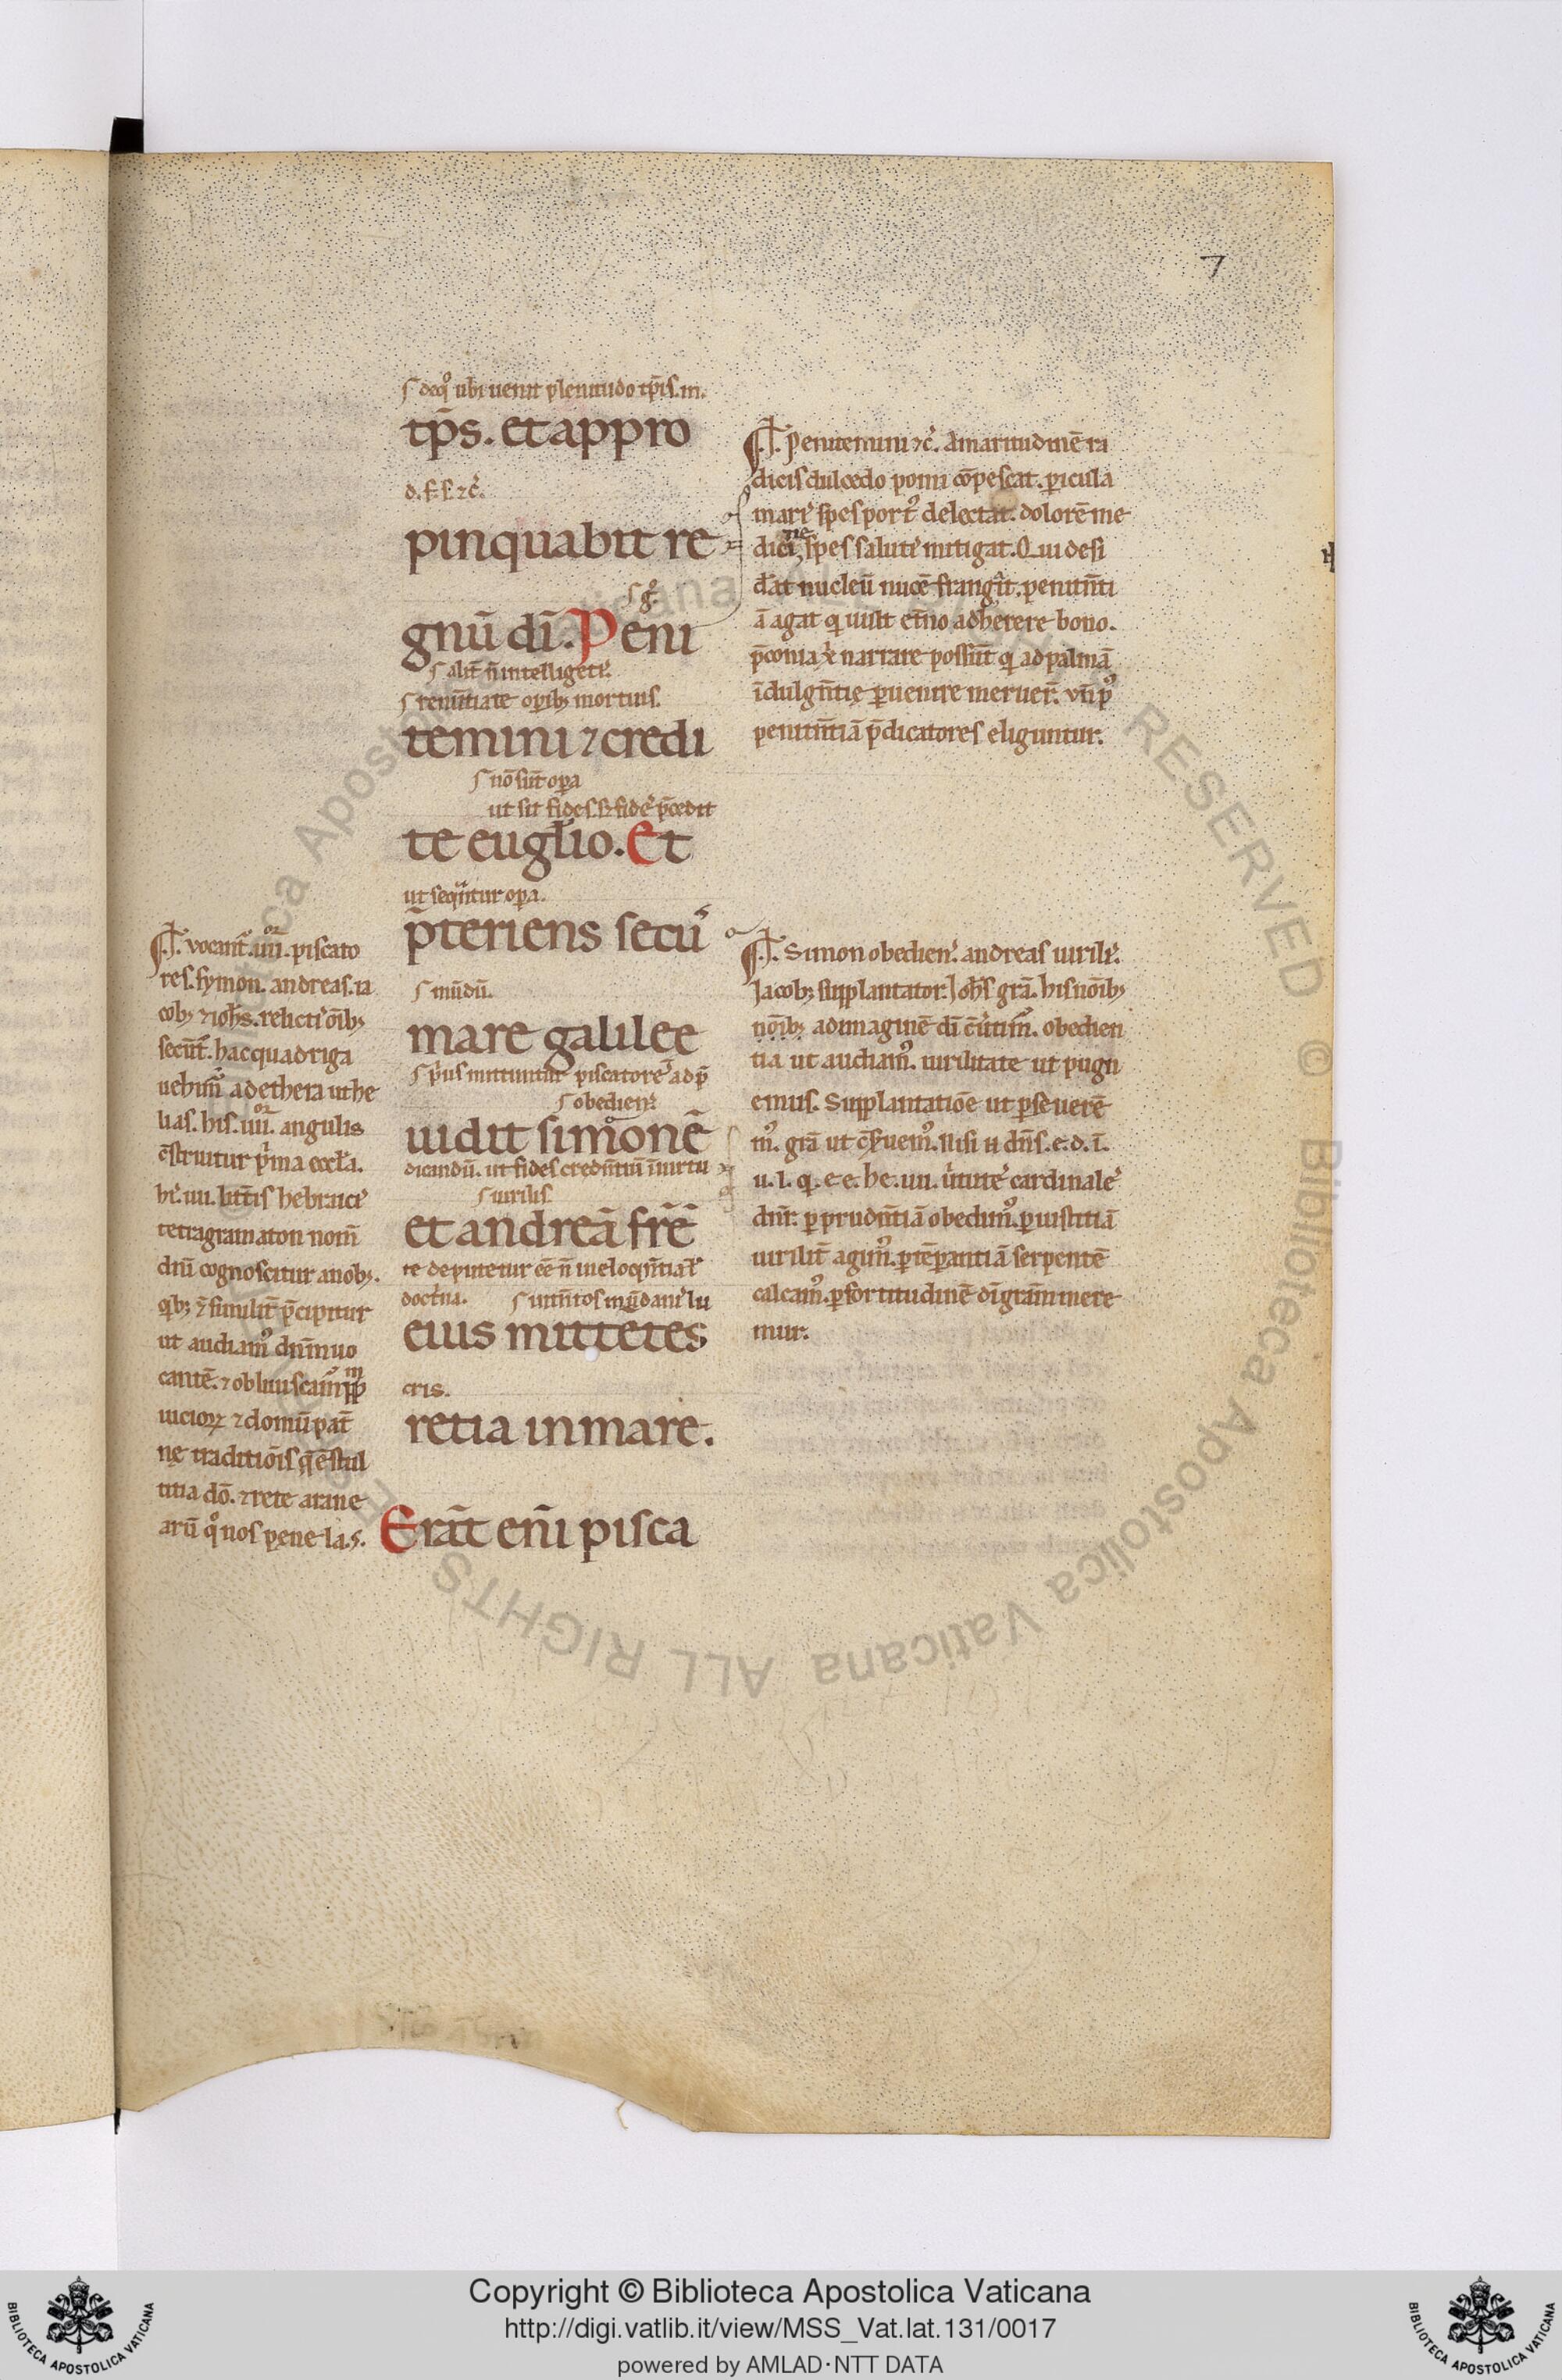 7
ſ deq͛ ubi uenit plenitudo tp̄is. in.
tp̄s. et appro
d. s. s. ⁊c̄.
pinquabit re
gnū di̅. Peni
ſ alit̄ n̄ intelligetis.
ſ renūtiate oꝑibꝫ mortuis.
temini ⁊ credi
ſ nō sūt oꝑa
ut sit fides. sꝫ fides p̄cedit
te euglio. Et
ut sequntur oꝑa.
p̄teriens secus
ſ mūdū.
mare galilee
ſ pus mittuntur piscatores ad p̄
ſ obediens.
uidit simonē
dicandū. ut fides credn̄tiū ī uirtu
ſ uirilis.
et andreā frē
te deputetur ēē n̄ in eloqn̄tia ł
doct̄na. ſ uitn̄tos mūdani lu
eius mittētes
cris.
retia in mare.
Erāt eni̅ pisca
Penitemini ⁊c̄. Amaritudinē ra
dicis dulcedo pomi cōpescat. ꝑicula
maris spes portꝰ delectat. dolorē me
dicine spes salutis mitigat. Qui desi
dat nucleū nucē frangit. penitn̄ti
ā agat qui uult et̄no adherere bono.
p̄conia xp̄i narrare possūt qui ad palmā
īdulgn̄tię ꝑuenire meruer̄. vn̄ pꝰ
penitn̄tiā p̄dicatores eliguntur.
vocant̄. iiii. piscato
res. symon. andreas. ia
cobꝫ ⁊ iohs. relictis oīb;
secūt̄. hac quadriga
uehimꝰ ad ethera ut he
lias. his. iiii. angulis
c̄struitur p̄ma eccła.
his. iiii. litt̄is hebraicis
tetragramaton nom̄
dn̄i cognoscitur a nobꝫ.
qbꝫ ⁊ similit̄ p̄cipitur
ut audiamꝰ dn̄m uo
cantē. ⁊ obliuiscamꝰ ppm
uicioꝝ ⁊ domū pat̄
nę traditiōis q̄ ē stul
titia dō. ⁊ rete arane
arū q̊ nos pene la. s.
Simon obediens. andreas uirilis.
Iacobꝫ supplantator. Iohs grā. his nōibꝫ
nōibꝫ ad imaginē di̅ c̄uertimꝰ. obedien
tia ut audiamꝰ. uirilitate ut pugn
emus. Supplantatiōe ut ꝑseuerē
mꝰ. grā ut c̄seruemꝰ. Nisi n̄ dn̄s. c. d. i̅.
u. l. q. e e. he. iiii. uirtutes cardinales
dn̄r. ꝑ prudn̄tiā obedimꝰ. ꝑ iustitiā
uirilit̄ agimꝰ. ꝑ tēperantiā serpentē
calcamꝰ. ꝑ fortitudinē di̅ gram̄ mere
mur.
Copyright © Biblioteca Apostolica Vaticana
http://digi.vatlib.it/view/MSS_Vat.lat.131/0017
powered by AMLAD·NTT DATA